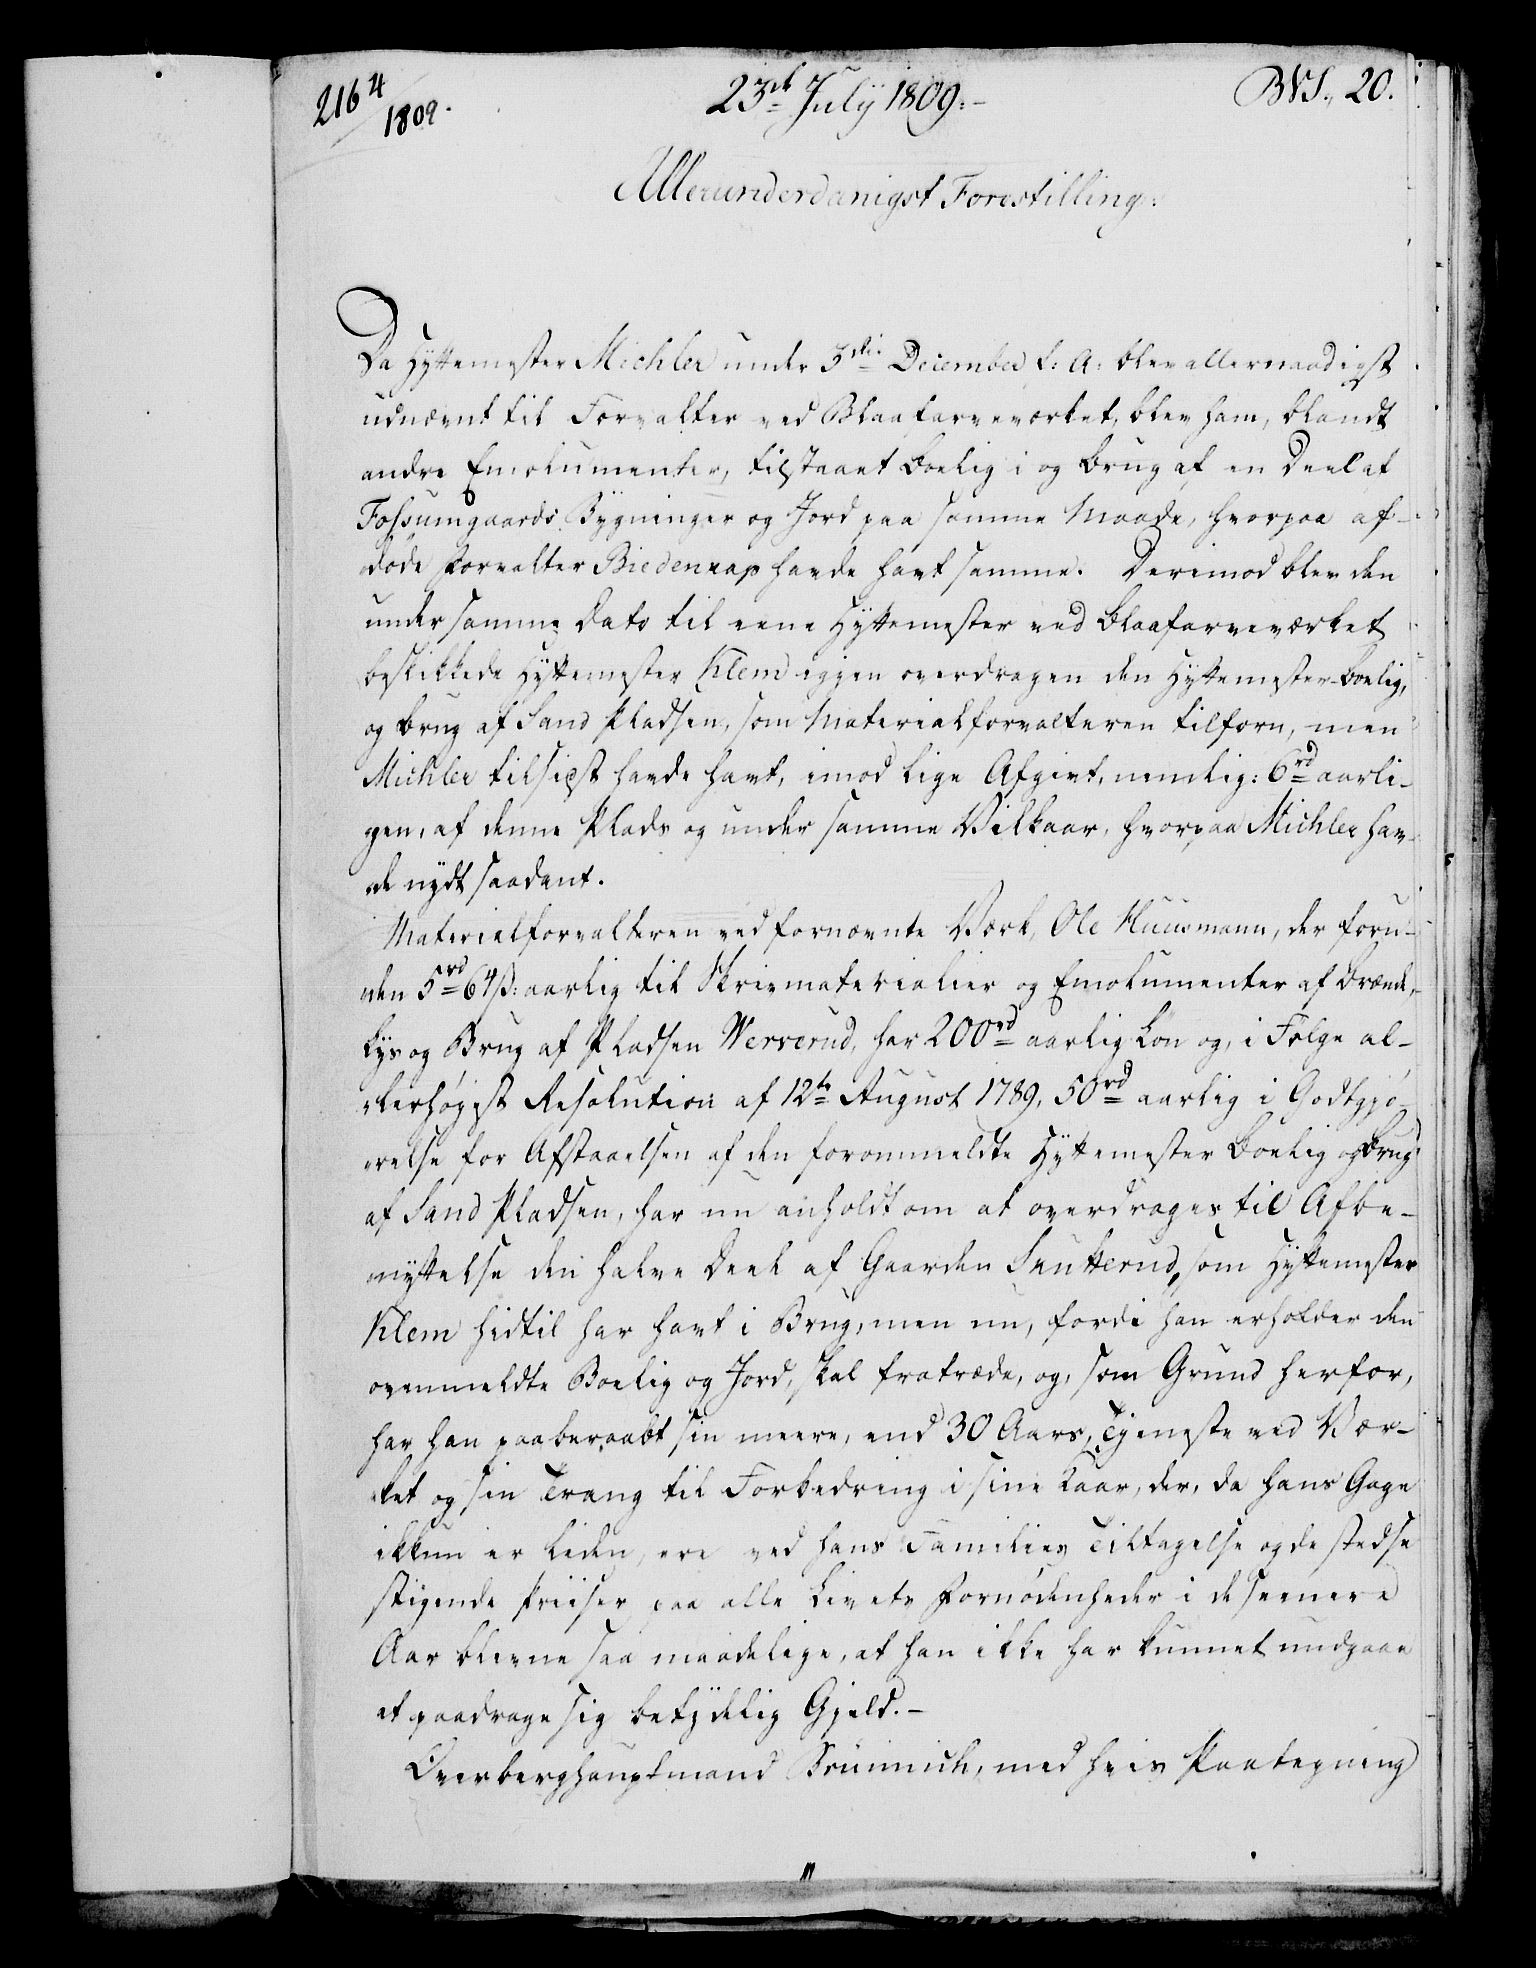 2164/1809.
23de July 1809.-
BVS., 20.
Allerunderdanigst Forestilling.
Da Hyttemester Michler under 3die December f: A: blev allernaadigst
udnævnt til Forvalter ved Blaafarveværket, blev ham, blandt
andre Emolumenter, tilstaaet Boelig i og Brug af en Deel af
Fossumgaards Bygninger og Jord paa samme Maade, hvorpaa af-
døde Forvalter Biedenkap havde havt samme. Derimod blev den
under samme Dato til eene Hyttemester ved Blaafarveværket
beskikkede Hyttemester Klem igjen overdragen den Hyttemester-Boelig,
og Brug af Sand Pladsen, som Materialforvalteren tilforn, men
Michler tilsidst havde havt, imod lige Afgivt, nemlig: 6rd aarli-
gen, af denne Plads og under samme Vilkaar, hvorpaa Michler hav-
de nydt saadant.
Materialforvalteren ved fornævnte Værk, Ole Huusmann, der foru-
den 5rd 64ß: aarlig til Skrivmaterialier og Emolumenter af Brænde,
Lys og Brug af Pladsen Wersrud, har 200rd aarlig Løn og, i Følge al-
lerhøyst Resolution af 12te August 1789, 50rd aarlig i Godtgjø-
relse for Afstaaelsen af den forommeldte Hyttemester Boelig og Brug
af Sand Pladsen, har nu anholdt om at overdrages til Afbe-
nyttelse den halve Deel af Gaarden Snutterud, som Hyttemester
Klem hidtil har havt i Brug, men nu, fordi han erholder den
ovenmeldte Boelig og Jord, skal fratræde, og, som Grund herfor,
har han paaberaabt sin meere, end 30 Aars, Tjeneste ved Vær-
ket og sin Trang til Forbedring i sine Kaar, der, da hans Gage
ikkun er liden, ere ved hans Families Tiltagelse og de stedse
stigende Priiser paa alle Livets Fornødenheder i de seenere
Aar blevne saa maadelige, at han ikke har kunnet undgaae
at paadrage sig betydelig Gjeld.-
Overberghauptmand Brünnich, med hvis Paategning